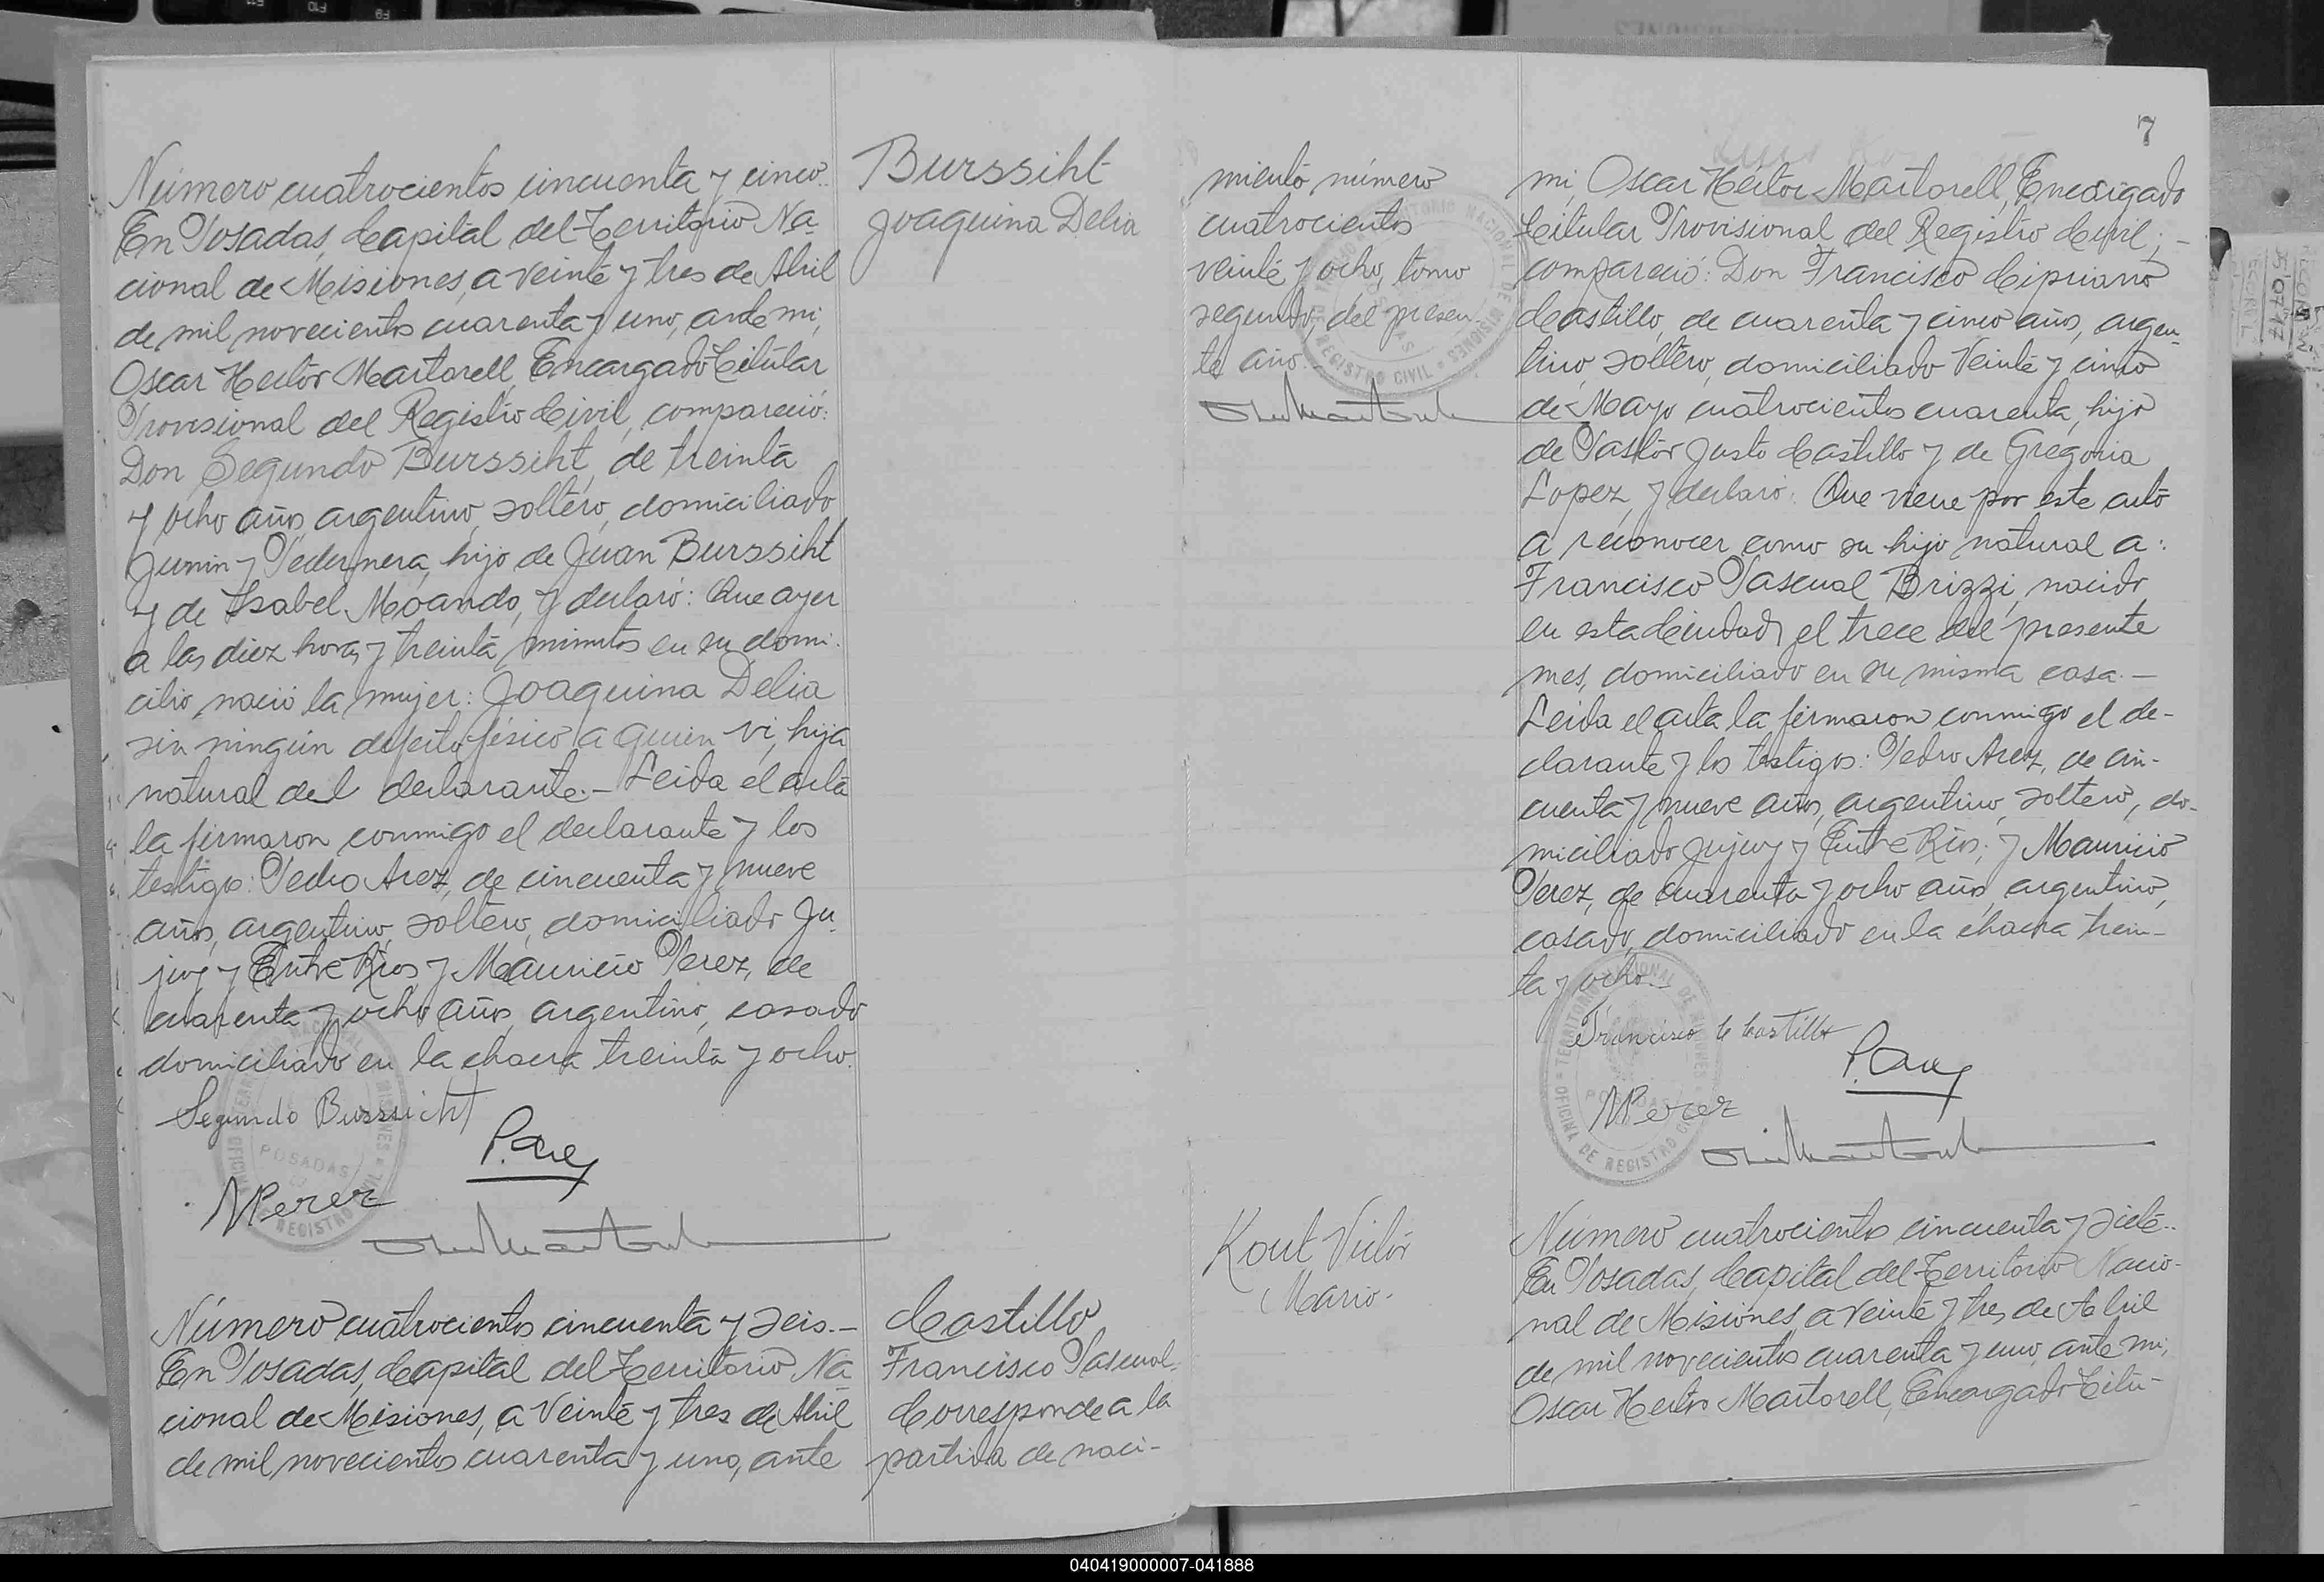 Número cuatrocientos cincuenta y cinco.
En Posadas, Capital del Territorio Na-
cional de Misiones, a veinte y tres de Abril
de mil novecientos cuarenta y uno, ante mi,
Oscar Hector Martorell, Encargado Titular
Provisional del Registro Civil, compareció:
Don Segundo Burssiht, de treinta
y ocho años, argentino, soltero, domiciliado
Junin y Pedernera, hijo de Juan Burssiht
y de Isabel Moando, y declaró: Que ayer
a las diez horas y treinta minutos en su domi-
cilio, nació la mujer: Joaquina Delia
sin ningún defecto físico a quien vi, hija
natural del declarante.- Leida el acta
la firmaron conmigo el declarante y los
testigos: Pedro Arez, de cincuenta y nueve
años, argentino, soltero, domiciliado Ju-
juy y Entre Rios, y Mauricio Perez, de
cuarenta y ocho años, argentino, casado
domiciliado en la chacra treinta y ocho.
Segundo Burssicht
P. Arez
MPerez
POSADAS
Burssiht
Joaquina Delia
Número cuatrocientos cincuenta y seis.-
En Posadas, Capital del Territorio Na
cional de Misiones, a veinte y tres de Abril
de mil novecientos cuarenta y uno, ante
Castillo
Francisco Pascual.
Corresponde a la
partida de naci-
miento número
cuatrocientos
veinte y ocho, tomo
segundo, del presen-
te año.
7
mi, Oscar Héctor Martorell, Encargado
Titular Provisional del Registro Civil; -
compareció: Don Francisco Cipriano
Castillo, de cuarenta y cinco años, argen-
tino, soltero, domiciliado Veinte y cinco
de Mayo cuatrocientos cuarenta, hijo
de Pastor Justo Castillo y de Gregoria
Lopez, y declaró: Que viene por este acto
a reconocer como su hijo natural a:
Francisco Pascual Brizzi, nacido
en esta Ciudad, el trece del presente
mes, domiciliado en su misma casa.-
Leida el acta la firmaron conmigo el de-
clarante y los testigos: Pedro Arez, de cin-
cuenta y nueve años, argentino, soltero, do-
miciliado Jujuy y Entre Rios; y Mauricio
Perez, de cuarenta y ocho años, argentino,
casado, domiciliado en la chacra trein-
ta y ocho.-
Francisco C Castillo
P. Arez
MPerez
TERRITORIO NACIONAL DE MISIONES
OFICINA DE REGISTRO CIVIL
POSADAS
Kout Victor
Mario.
Número cuatrocientos cincuenta y siete.
En Posadas, Capital del Territorio Nacio-
nal de Misiones, a veinte y tres de Abril
de mil novecientos cuarenta y uno, ante mi,
Oscar Hector Martorell, Encargado Titu-
040419000007-041888